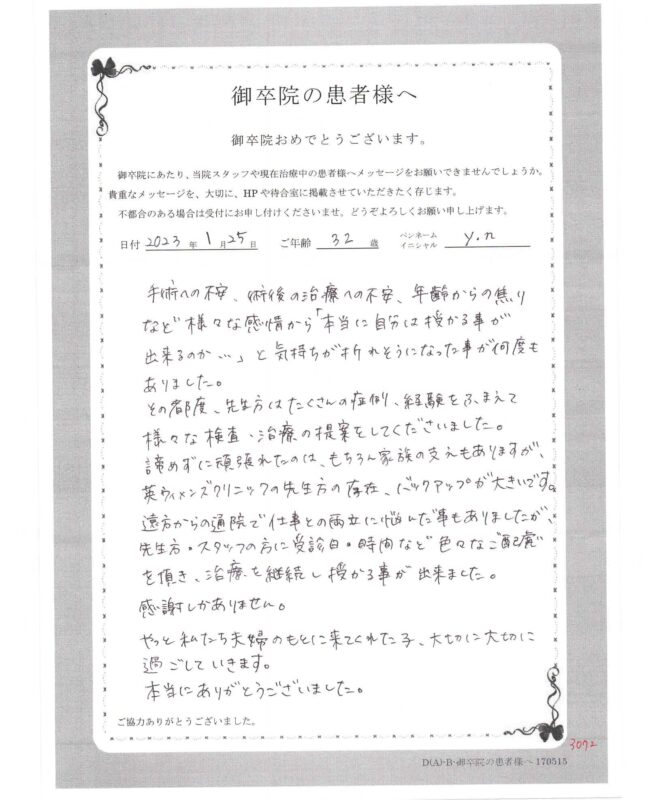 御卒院の患者様へ
御卒院おめでとうございます。
御卒院にあたり、当院スタッフや現在治療中の患者様へメッセージをお願いできませんでしょうか。
貴重なメッセージを、大切に、HPや待合室に掲載させていただきたく存じます。
不都合のある場合は受付にお申し付けくださいませ。どうぞよろしくお願い申し上げます。
日付 2023 年 1 月 25 日 ご年齢 32 歳 ペンネーム イニシャル y.n
手術への不安、術後の治療への不安、年齢からの焦り
など様々な感情から「本当に自分は授かる事が
出来るのか…」と気持ちが折れそうになった事が何度も
ありました。
その都度、先生方はたくさんの症例、経験をふまえて
様々な検査・治療の提案をしてくださいました。
諦めずに頑張れたのは、もちろん家族の支えもありますが、
英ウィメンズクリニックの先生方の存在、バックアップが大きいです。
遠方からの通院で仕事との両立に悩んだ事もありましたが、
先生方・スタッフの方に受診日・時間など色々なご配慮
を頂き、治療を継続し授かる事が出来ました。
感謝しかありません。
やっと私たち夫婦のもとに来てくれた子、大切に大切に
過ごしていきます。
本当にありがとうございました。
ご協力ありがとうございました。
3072
D(A)-B-御卒院の患者様へ 170515